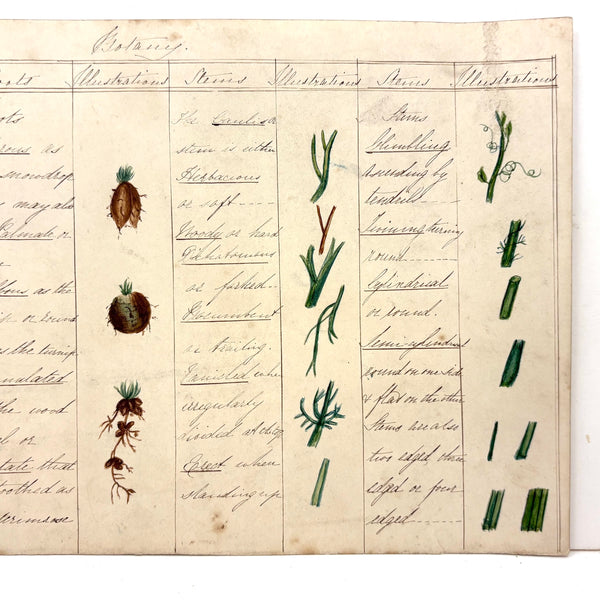 Botany.
Illustrations
Stems
Illustrations
Stems
Illustrations
as
snowdrop
may also
Palmate or
as the
or round
as the turnip
the wood
or
that
toothed as
primrose
The
stem is either
Herbacious
or soft
Woody or hard
Dichotomous
or forked
Procumbent
or trailing.
when
irregularly
divided at
Erect when
standing up
Stems
Climbing
ascending by
tendrils
Twining turning
round
Cylindrical
or round.
Semicylindrical
round on one side
& flat on the other
Stems are also
two edged, three
edged or four
edged